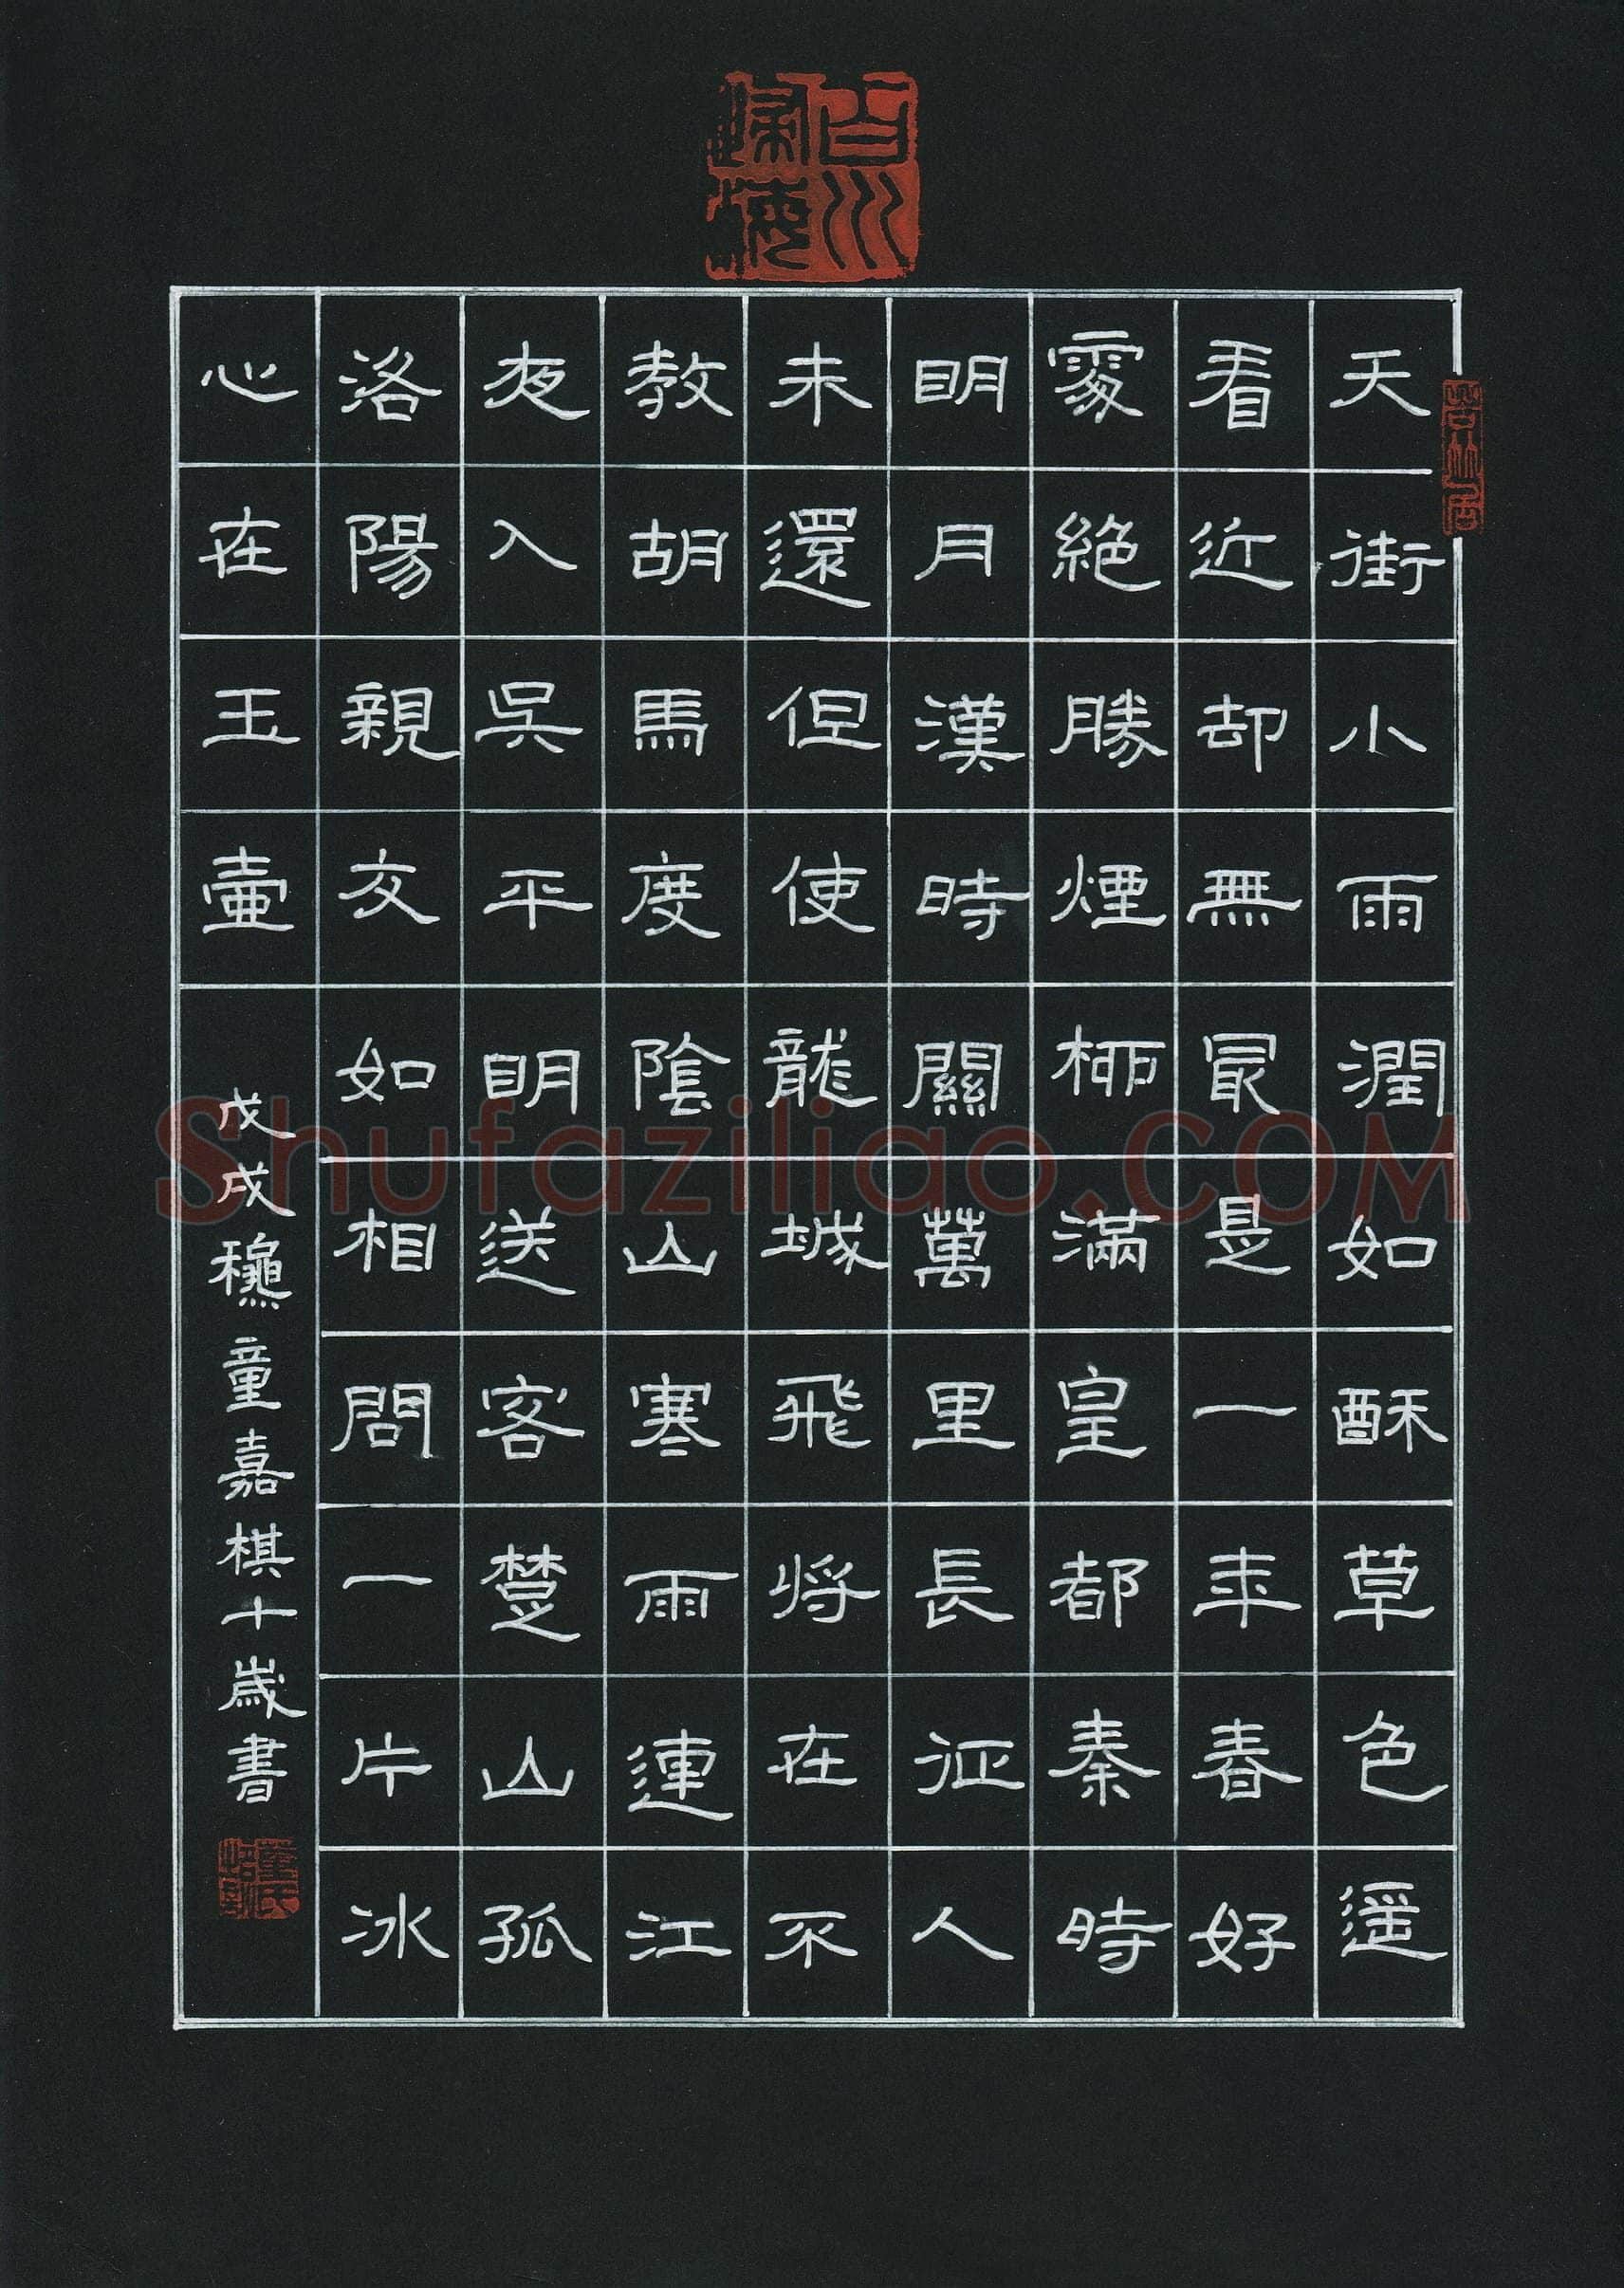 百川歸海
天街小雨潤如酥草色遥
看近却無最是一年春好
處絕勝煙柳滿皇都秦時
明月漢時關萬里長征人
未還但使龍城飛將在不
教胡馬度陰山寒雨連江
夜入吳平明送客楚山孤
洛陽親友如相問一片冰
心在玉壺
戊戌龝童嘉棋十歲書
Shufaziliao.COM